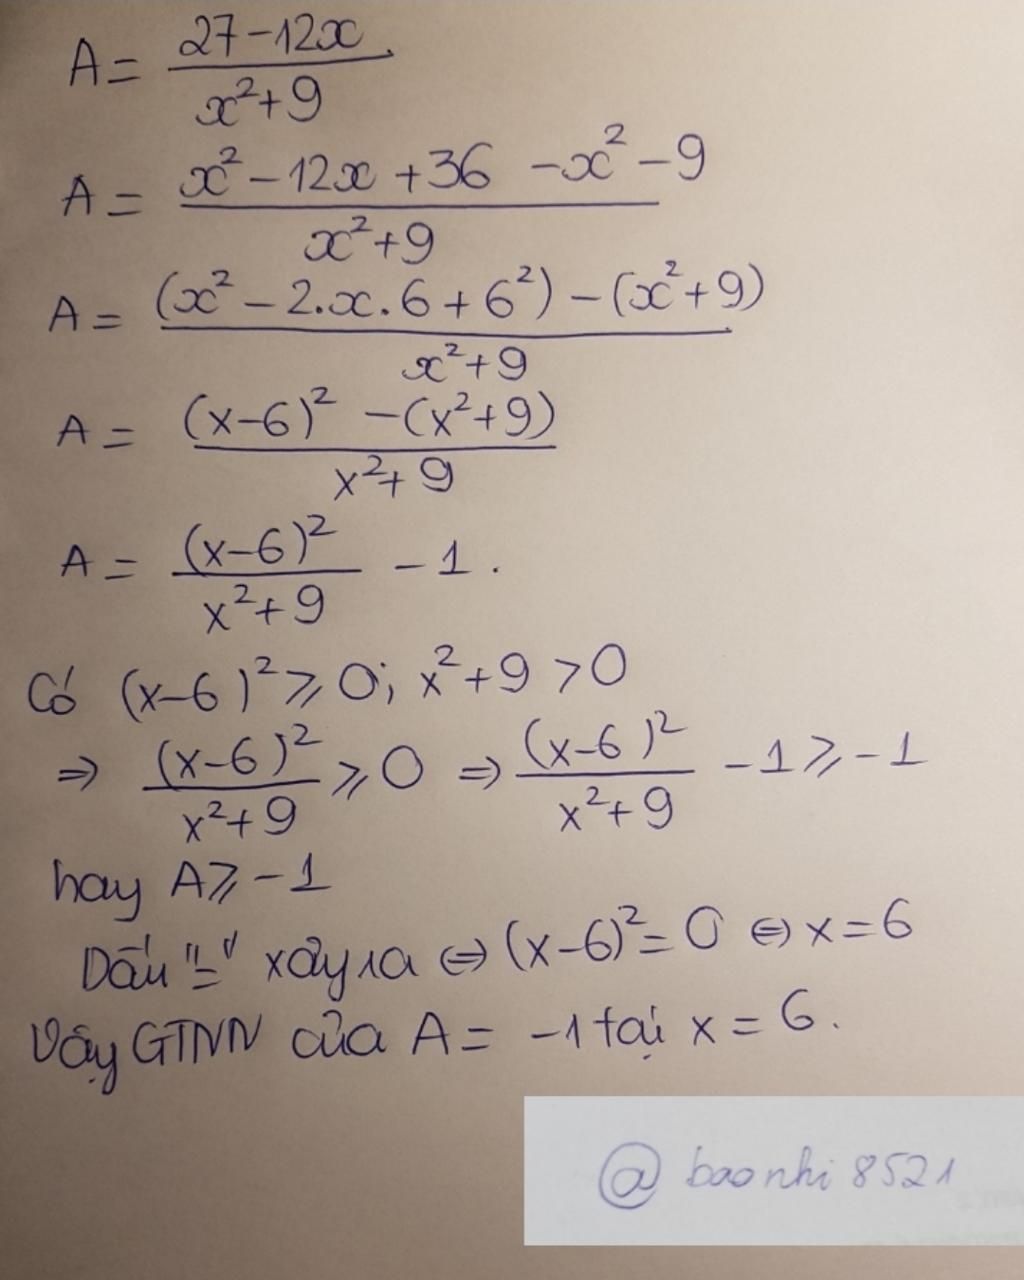 A = \frac{27-12x}{x^2+9}.
A = \frac{x^2-12x+36-x^2-9}{x^2+9}
A = \frac{(x^2-2.x.6+6^2)-(x^2+9)}{x^2+9}
A = \frac{(x-6)^2-(x^2+9)}{x^2+9}
A = \frac{(x-6)^2}{x^2+9} - 1.
Có (x-6)^2 ⩾ 0; x^2+9 > 0
⇒ \frac{(x-6)^2}{x^2+9} ⩾ 0 ⇒ \frac{(x-6)^2}{x^2+9} - 1 ⩾ -1
hay A ⩾ -1
Dấu "=" xảy ra ⇔ (x-6)^2 = 0 ⇔ x = 6
Vậy GTNN của A = -1 tại x = 6.
@ baonhi 8521